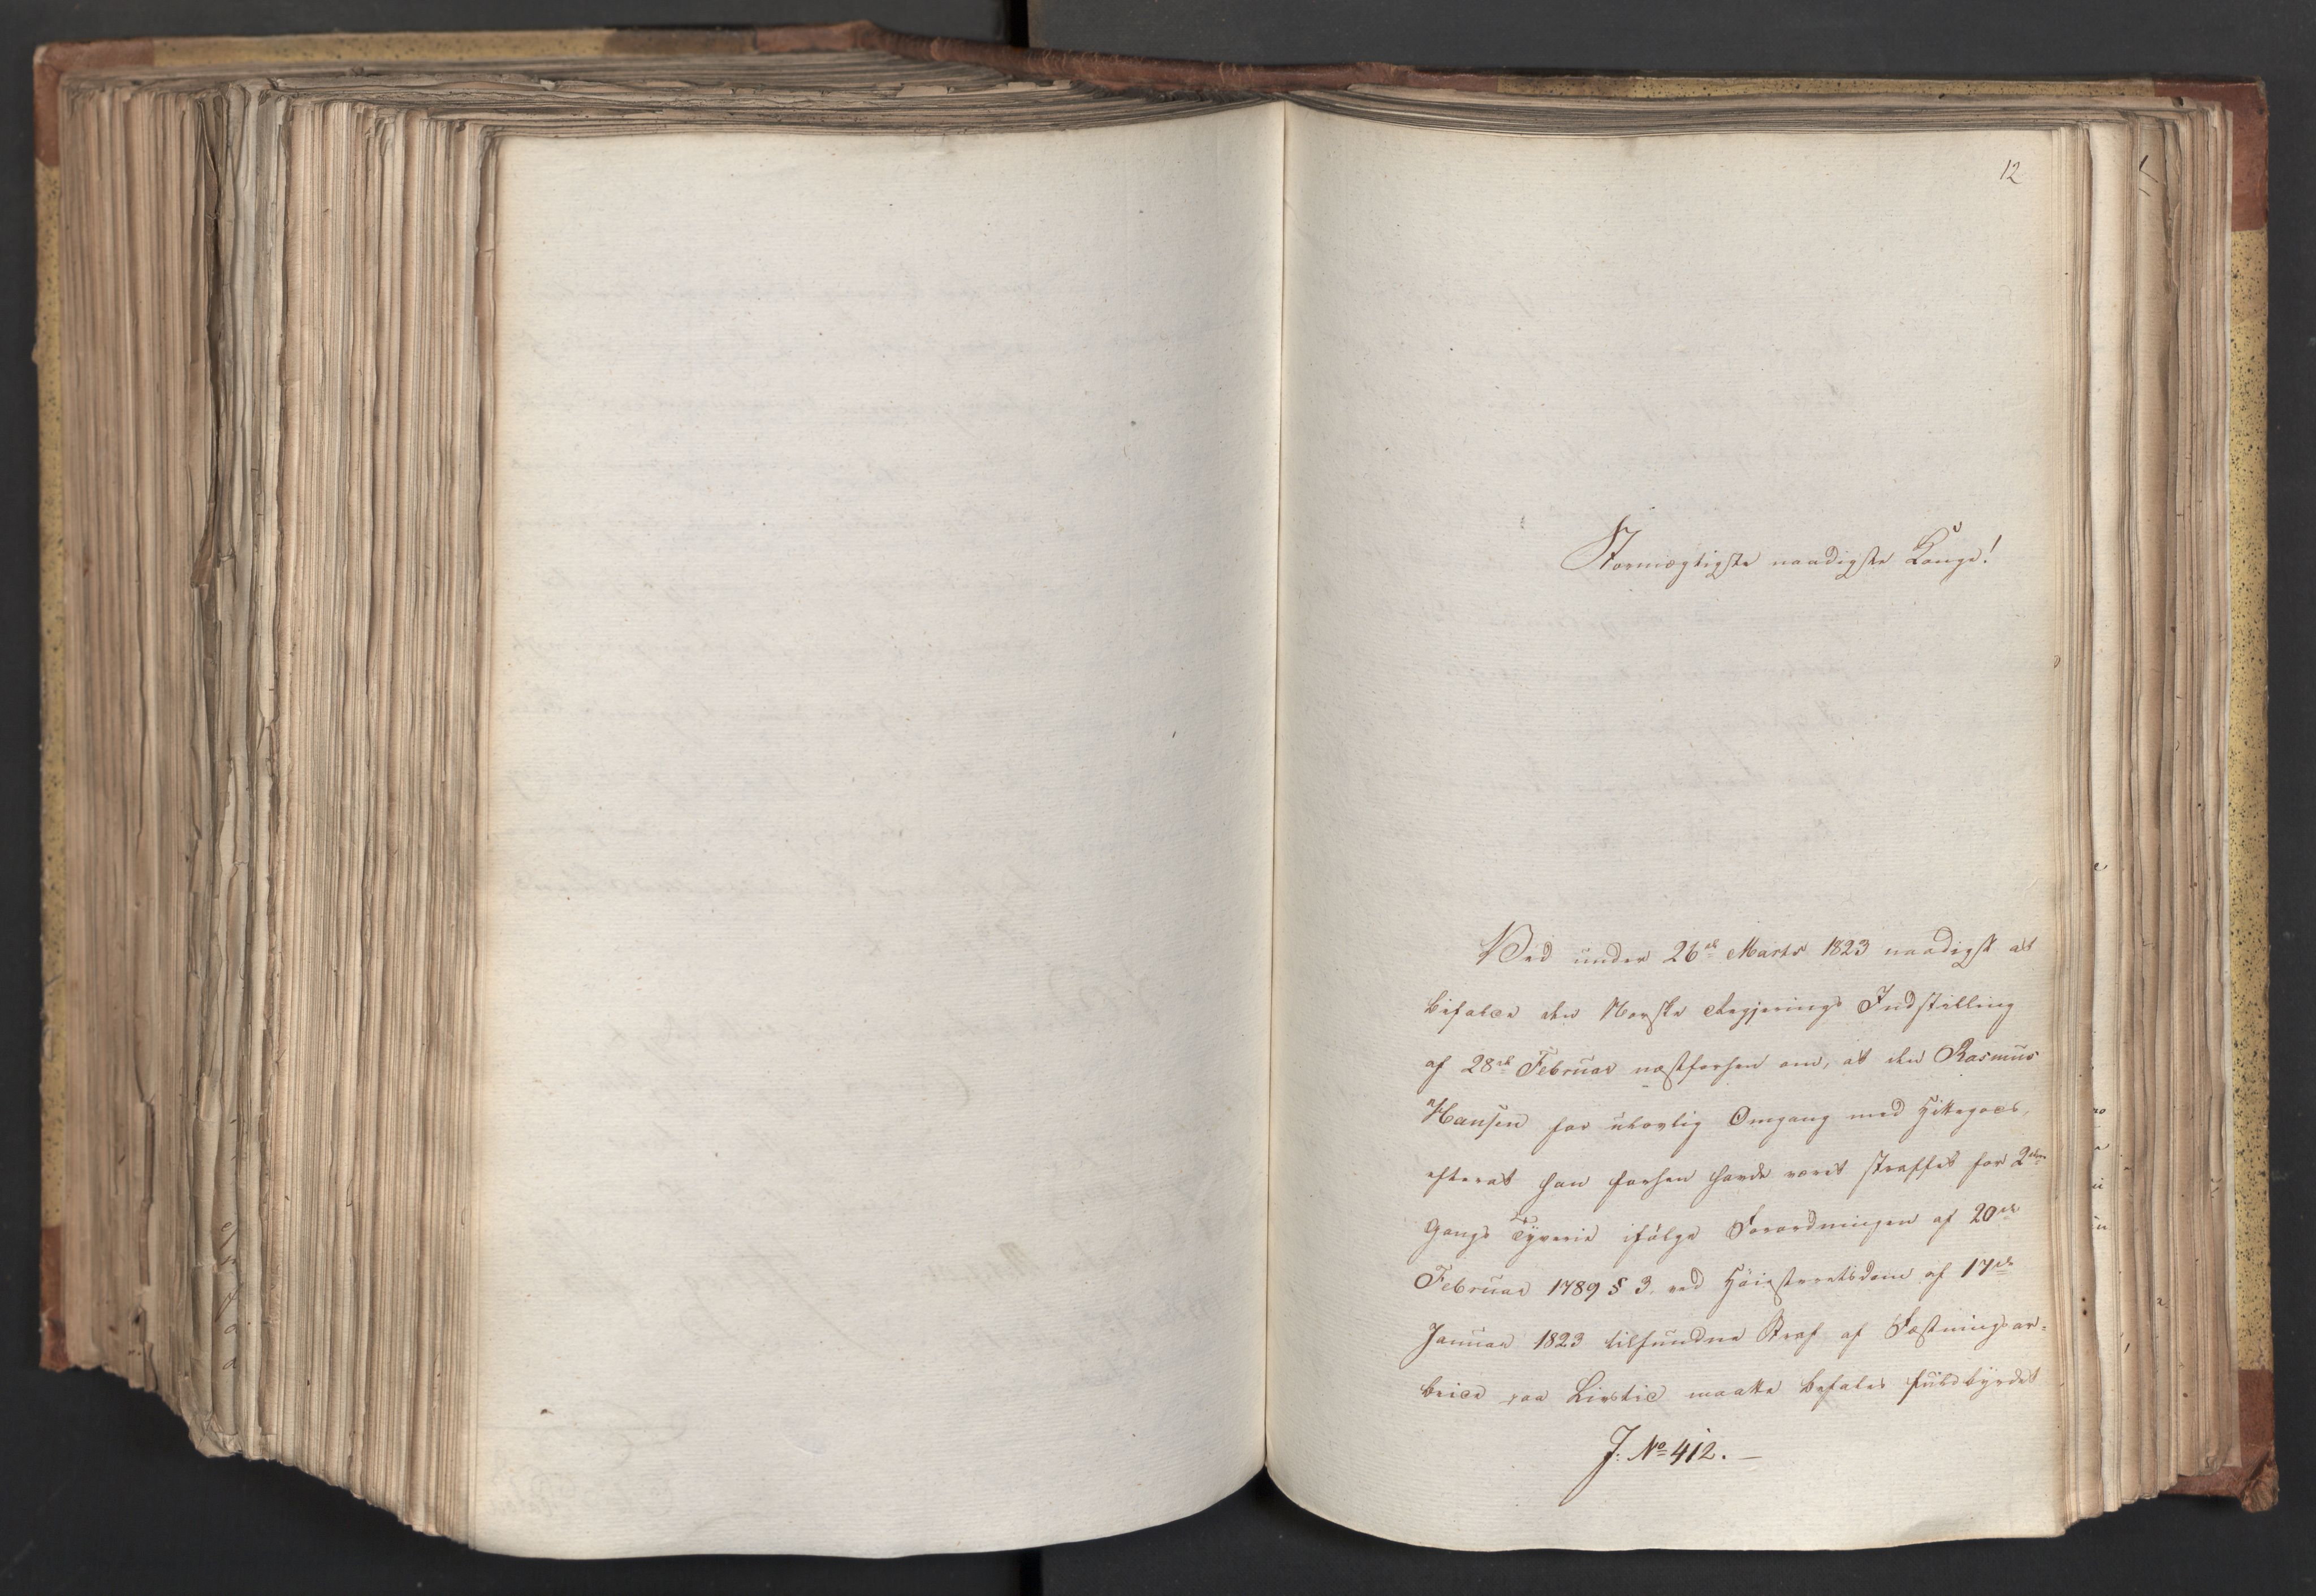 12
Stormægtigste naadigste Konge!
Ved under 26de Marts 1823 naadigst at
bifalde den Norske Regjerings Indstilling
af 28de Februar næstforhen om, at den Rasmus
Hansen for ulovlig Omgang med Hittegods,
efterat han forhen havde været straffet for 2den
Gangs Tyverie ifølge Forordningen af 20de
Februar 1789 § 3, ved Høiesteretsdom af 17de
Januar 1823 tilfundne Straf af Fæstningsar-
beide paa Livstid maatte befales fuldbyrdet
J: No 412. —